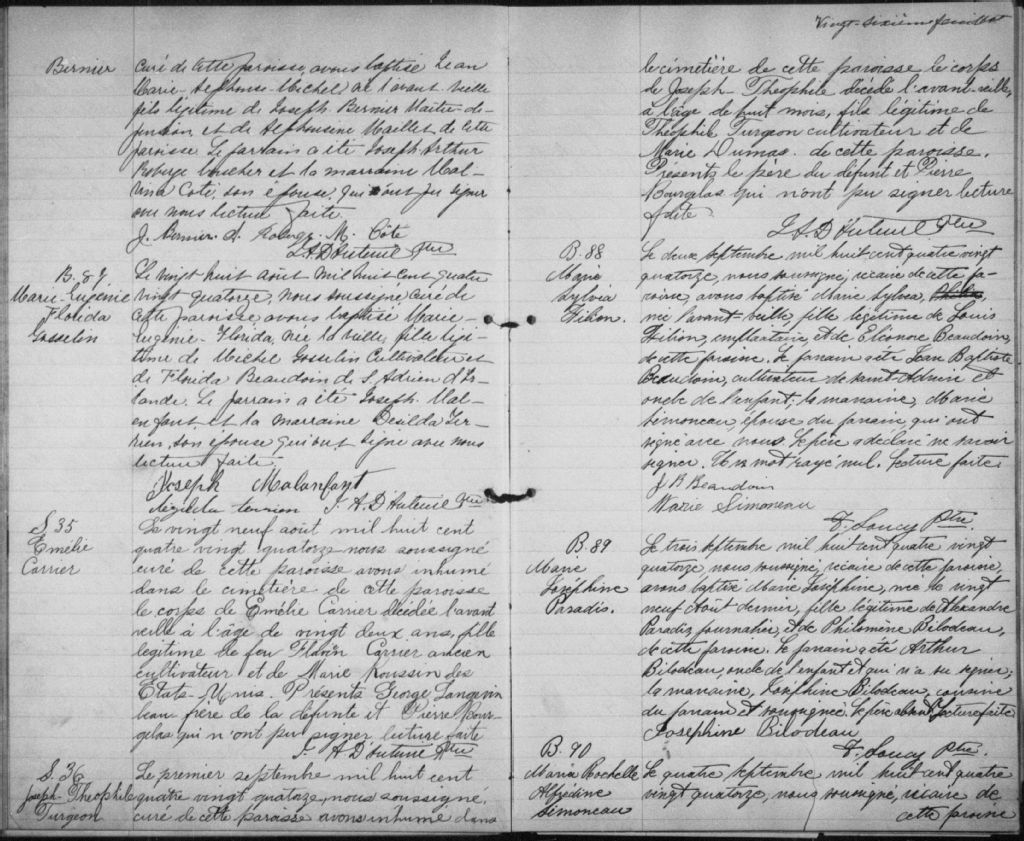 Bernier
curé de cette paroisse, avons baptisé Jean
Marie-Alphonse-Michel né l'avant-veille
fils légitime de Joseph Bernier Maître de
pension et de Alphonsine Maillet de cette
paroisse. Le parrain a été Joseph Arthur
Roberge boucher et la marraine Mal-
vina Coté, son épouse, qui ont pu signer
avec nous lecture faite.
J. Bernier. A. Roberge. M. Côte
J.A.D'Auteuil Ptre
B. 87
Marie-Eugénie
Florida
Gosselin
Le vingt huit août mil huit cent quatre
vingt quatorze, nous soussigné, curé de
cette paroisse avons baptisé Marie-
Eugénie-Florida, née la veille, fille légi-
time de Michel Gosselin Cultivateur et
de Florida Beaudoin de S. Adrien d'Ir-
lande. Le parrain a été Joseph Mal-
enfant et la marraine Dézilda Ter-
rien, son épouse qui ont signé avec nous
lecture faite.
Joseph Malanfant
terrien J. A. D'Auteuil Ptre
S 35
Emélie
Carrier
Le vingt neuf août mil huit cent
quatre vingt quatorze nous soussigné
curé de cette paroisse avons inhumé
dans le cimetière de cette paroisse
le corps de Emélie Carrier décédée l'avant
veille à l'âge de vingt deux ans, fille
légitime de feu Carrier ancien
cultivateur et de Marie Roussin des
Etats-Unis. Présents George Languin
beau frère de la défunte et Pierre Bour-
gelas qui n'ont pu signer lecture faite
J. A D'Auteuil Ptre
S. 36
Joseph-Théophile
Turgeon
Le premier septembre mil huit cent
quatre vingt quatorze, nous soussigné,
curé de cette paroisse avons inhumé dans
Vingt-sixième feuillet
le cimetière de cette paroisse le corps
de Joseph-Théophile décédé l'avant-veille,
à l'âge de huit mois, fils légitime de
Théophile Turgeon cultivateur et de
Marie Dumas. de cette paroisse.
Présents le père du défunt et Pierre
Bourgelas qui n'ont pu signer lecture
faite
J.A.D'Auteuil Ptre
B. 88
Marie
Sylvia
Filion.
Le deux septembre mil huit cent quatre vingt
quatorze, nous soussigné, vicaire de cette pa-
roisse, avons baptisé Marie Sylvia,
née l'avant-veille fille légitime de Louis
Filion, emplanteur, et de Eléonore Beaudoin,
de cette paroisse. Le parrain a été Jean Baptiste
Beaudoin, cultivateur de Saint-Adrien et
oncle de l'enfant; la marraine, Marie
Simoneau, épouse du parrain, qui ont
signé avec nous. Le père a déclaré ne savoir
signer. Un mot rayé nul. Lecture faite.
J B Beaudoin
Marie Simoneau
F. Soucy Ptre.
B. 89
Marie
Joséphine
Paradis.
Le trois septembre mil huit cent quatre vingt
quatorze, nous soussigné, vicaire de cette paroisse,
avons baptisé Marie Joséphine, née le vingt
neuf Août dernier, fille légitime de Alexandre
Paradis journalier, et de Philomène Bilodeau,
de cette paroisse. Le parrain a été Arthur
Bilodeau, oncle de l'enfant et qui n'a su signer;
la marraine, Joséphine Bilodeau, cousine
du parrain et soussignée. Le père absent. Lecture faite.
Josephine Bilodeau
F. Soucy Ptre.
B. 90
Maria Rochelle
Alfédine
Simoneau
Le quatre septembre mil huit cent quatre
vingt quatorze, nous soussigné, vicaire de
cette paroisse